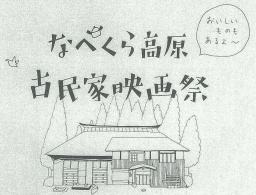 なべくら高原
古民家映画祭
おいしい
ものも
あるよ〜